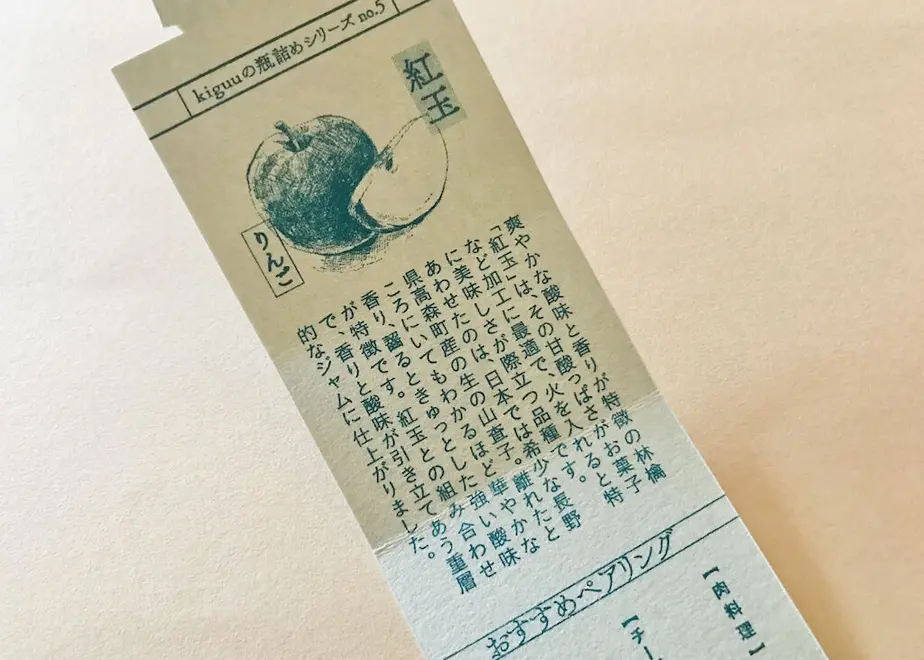 kiguuの瓶詰めシリーズ no.5
紅玉
りんご
爽やかな酸味と香りが特徴の林檎
「紅玉」は、その甘酸っぱさがお菓子
など加工に最適で、火を入れると特
に美味しさが際立つ品種です。
あわせたのは、日本では希少な長野
県高森町産の生の山査子。離れたと
ころにいてもわかるほど華やかな
香り、齧るときゅっとした強い酸味
が特徴です。紅玉との組み合わせ
で、香りと酸味が引き立てあう重層
的なジャムに仕上がりました。
おすすめペアリング
【肉料理】
【チー